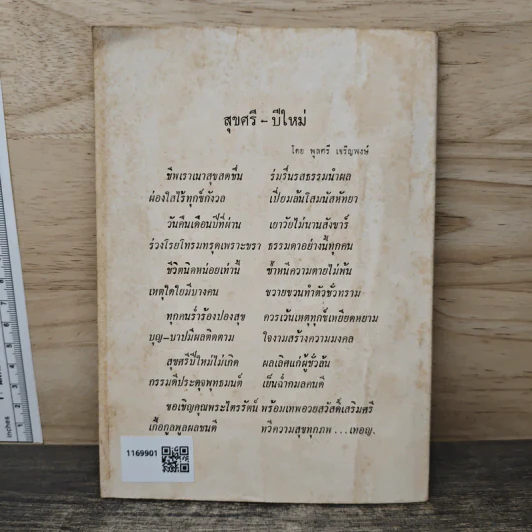 สุขศรี – ปีใหม่
โดย พูลศรี เจริญพงษ์
ชีพเราเนาสุขสดชื่น ร่มรื่นรสธรรมนำผล
ผ่องใสไร้ทุกข์กังวล เปี่ยมล้นโสมนัสหัทยา
วันคืนเดือนปีที่ผ่าน เยาวัยไม่นานสังขาร์
ร่วงโรยโทรมทรุดเพราะชรา ธรรมดาอย่างนี้ทุกคน
ชีวิตนิดหน่อยเท่านี้ ซ้ำหนีความตายไม่พ้น
เหตุใดใยมีบางคน ขวายขวนทำตัวชั่วทราม
ทุกคนร่ำร้องปองสุข ควรเว้นเหตุทุกข์เหยียดหยาม
บุญ–บาปมีผลติดตาม ใจงามสร้างความมงคล
สุขศรีปีใหม่ไม่เกิด ผลเลิศแก่ผู้ชั่วล้น
กรรมดีประดุจพุทธมนต์ เย็นฉ่ำกมลคนดี
ขอเชิญคุณพระไตรรัตน์ พร้อมเทพอวยสวัสดิ์เสริมศรี
เกื้อกูลพูลผลขนดี ทวีความสุขทุกภพ ...เทอญ.
1169901
inches